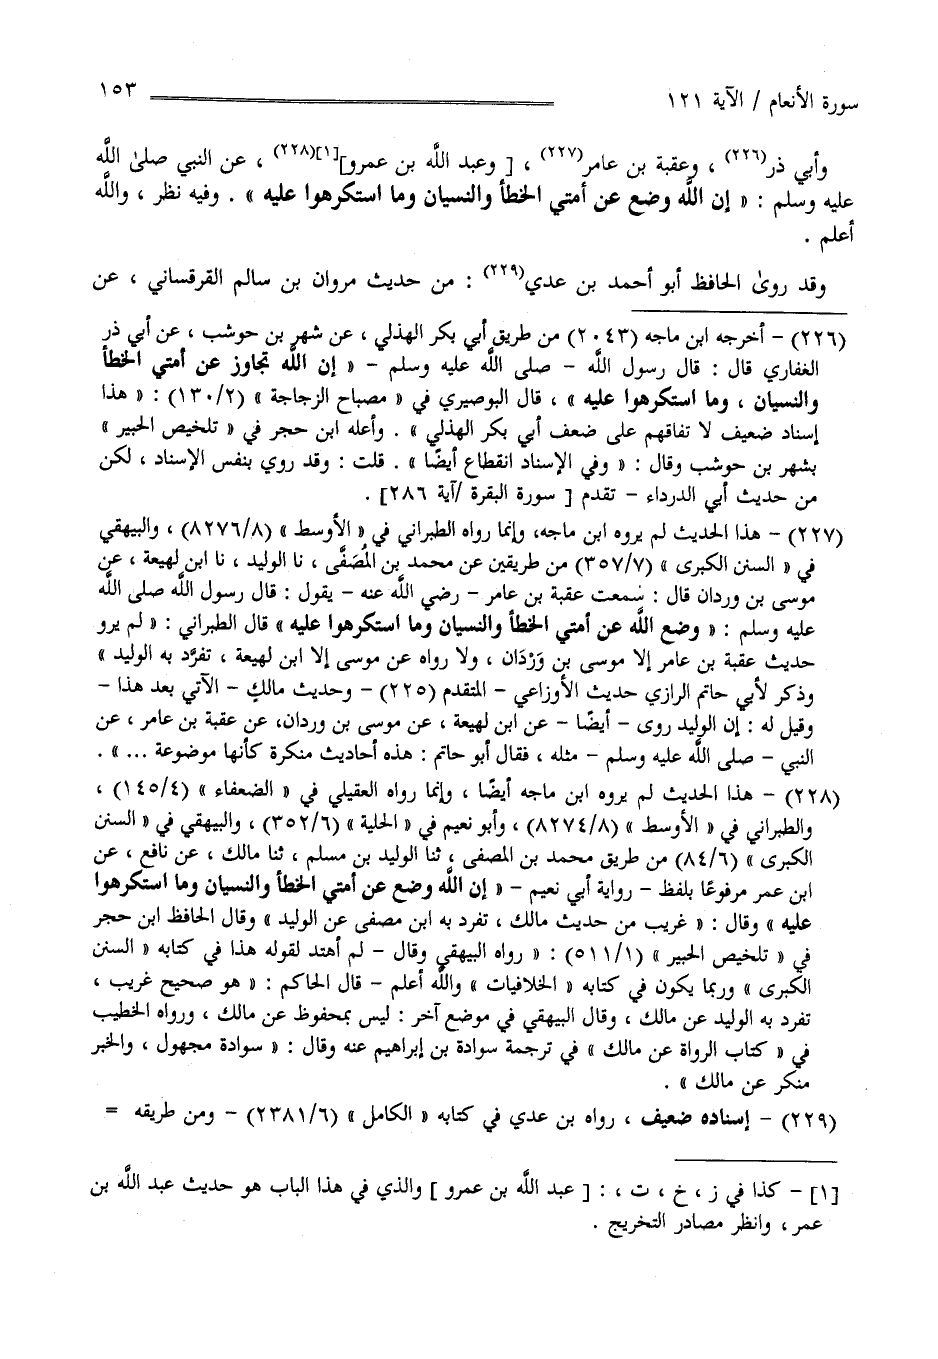 سورة الأنعام / الآية ١٢١ ١٥٣
وأبي ذر(٢٢٦) ، وعقبة بن عامر(٢٢٧) ، [ وعبد اللَّه بن عمرو][١](٢٢٨) ، عن النبي صلىٰ اللَّه
عليه وسلم : « إن اللَّه وضع عن أمتي الخطأ والنسيان وما استكرهوا عليه » . وفيه نظر ، واللَّه
أعلم .
وقد روىٰ الحافظ أبو أحمد بن عدي(٢٢٩) : من حديث مروان بن سالم القرقساني ، عن
(٢٢٦) – أخرجه ابن ماجه (٢٠٤٣) من طريق أبي بكر الهذلي ، عن شهر بن حوشب ، عن أبي ذر
الغفاري قال : قال رسول اللَّه – صلى اللَّه عليه وسلم – « إن اللَّه تجاوز عن أمتي الخطأ
والنسيان ، وما استكرهوا عليه » ، قال البوصيري في « مصباح الزجاجة » (١٣٠/٢) : « هذا
إسناد ضعيف لا تفاقهم على ضعف أبي بكر الهذلي » . وأعله ابن حجر في « تلخيص الخبير »
بشهر بن حوشب وقال : « وفي الإسناد انقطاع أيضًا » . قلت : وقد روي بنفس الإسناد ، لكن
من حديث أبي الدرداء – تقدم [ سورة البقرة /آية ٢٨٦] .
(٢٢٧) – هذا الحديث لم يروه ابن ماجه، وإنما رواه الطبراني في « الأوسط » (٨٢٧٦/٨) ، والبيهقي
في « السنن الكبرى » (٣٥٧/٧) من طريقين عن محمد بن المُصَفَّى ، نا الوليد ، نا ابن لهيعة ، عن
موسى بن وردان قال : سمعت عقبة بن عامر – رضي اللَّه عنه – يقول : قال رسول اللَّه صلى اللَّه
عليه وسلم : « وضع اللَّه عن أمتي الخطأ والنسيان وما استكرهوا عليه » قال الطبراني : « لم يرو
حديث عقبة بن عامر إلا موسى بن وَرْدَان ، ولا رواه عن موسى إلا ابن لهيعة ، تفرَّد به الوليد »
وذكر لأبي حاتم الرازي حديث الأوزاعي – المتقدم (٢٢٥) – وحديث مالكٍ – الآتي بعد هذا –
وقيل له : إن الوليد روى – أيضًا – عن ابن لهيعة ، عن موسى بن وردان، عن عقبة بن عامر ، عن
النبي – صلى اللَّه عليه وسلم – مثله ، فقال أبو حاتم : هذه أحاديث منكرة كأنها موضوعة ... » .
(٢٢٨) – هذا الحديث لم يروه ابن ماجه أيضًا ، وإنما رواه العقيلي في « الضعفاء » (١٤٥/٤) ،
والطبراني في « الأوسط » (٨٢٧٤/٨) ، وأبو نعيم في « الحلية » (٣٥٢/٦) ، والبيهقي في « السنن
الكبرى » (٨٤/٦) من طريق محمد بن المصفى ، ثنا الوليد بن مسلم ، ثنا مالك ، عن نافع ، عن
ابن عمر مرفوعًا بلفظ – رواية أبي نعيم – « إن اللَّه وضع عن أمتي الخطأ والنسيان وما استكرهوا
عليه » وقال : « غريب من حديث مالك ، تفرد به ابن مصفى عن الوليد » وقال الحافظ ابن حجر
في « تلخيص الحبير » (٥١١/١) : « رواه البيهقي وقال – لم أهتد لقوله هذا في كتابه « السنن
الكبرى » وربما يكون في كتابه « الخلافيات » واللَّه أعلم – قال الحاكم : « هو صحيح غريب ،
تفرد به الوليد عن مالك ، وقال البيهقي في موضع آخر : ليس بمحفوظ عن مالك ، ورواه الخطيب
في « كتاب الرواة عن مالك » في ترجمة سوادة بن إبراهيم عنه وقال : « سوادة مجهول ، والخبر
منكر عن مالك » .
(٢٢٩) – إسناده ضعيف ، رواه بن عدي في كتابه « الكامل » (٢٣٨١/٦) – ومن طريقه =
[١] – كذا في ز ، خ ، ت ، : [ عبد اللَّه بن عمرو ] والذي في هذا الباب هو حديث عبد اللَّه بن
عمر ، وانظر مصادر التخريج .